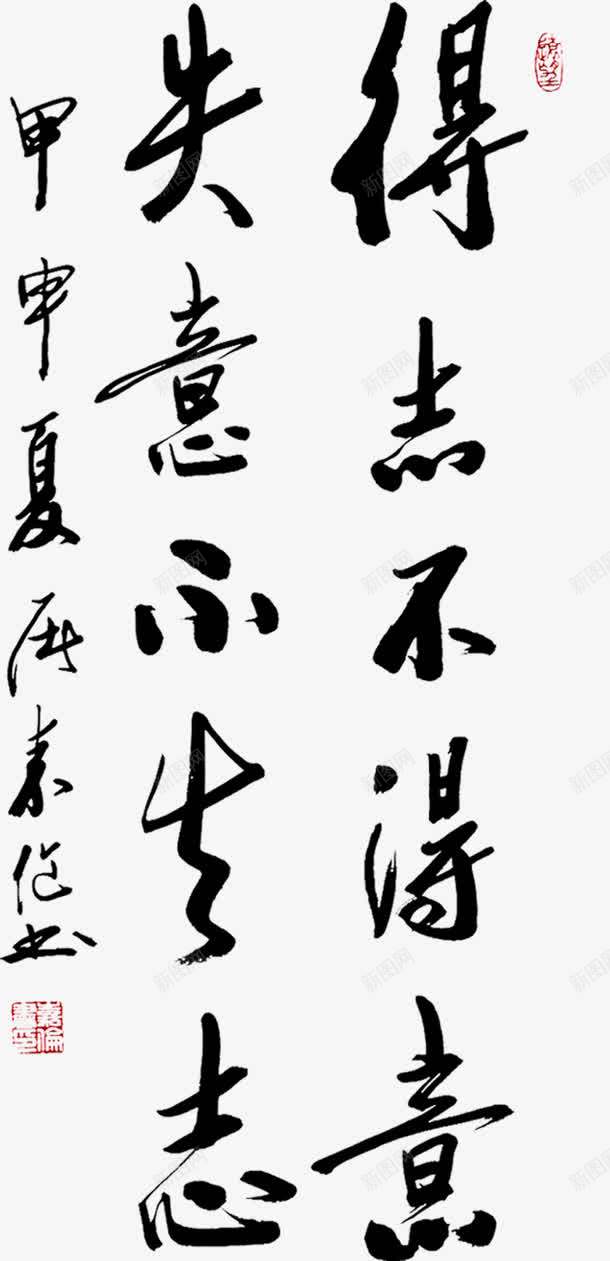 得志不得意
失意不失志
甲申夏
書
新图网